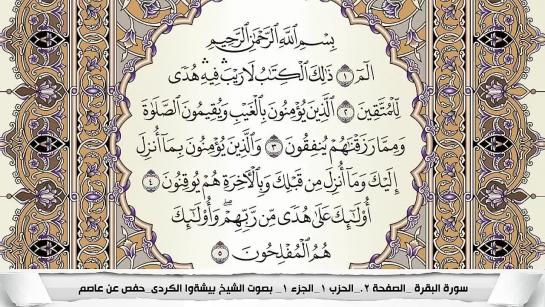 بِسْمِ اللَّهِ الرَّحْمَٰنِ الرَّحِيمِ
الٓمٓ ١ ذَٰلِكَ الْكِتَٰبُ لَا رَيْبَ ۛ فِيهِ ۛ هُدًى
لِّلْمُتَّقِينَ ٢ الَّذِينَ يُؤْمِنُونَ بِالْغَيْبِ وَيُقِيمُونَ الصَّلَوٰةَ
وَمِمَّا رَزَقْنَٰهُمْ يُنفِقُونَ ٣ وَالَّذِينَ يُؤْمِنُونَ بِمَا أُنزِلَ
إِلَيْكَ وَمَا أُنزِلَ مِن قَبْلِكَ وَبِالْآخِرَةِ هُمْ يُوقِنُونَ ٤
أُولَٰئِكَ عَلَىٰ هُدًى مِّن رَّبِّهِمْ ۖ وَأُولَٰئِكَ
هُمُ الْمُفْلِحُونَ ٥
سورة البقرة _الصفحة ٢._الحزب ١_الجزء ١_ بصوت الشيخ بيشةوا الكردى_حفص عن عاصم